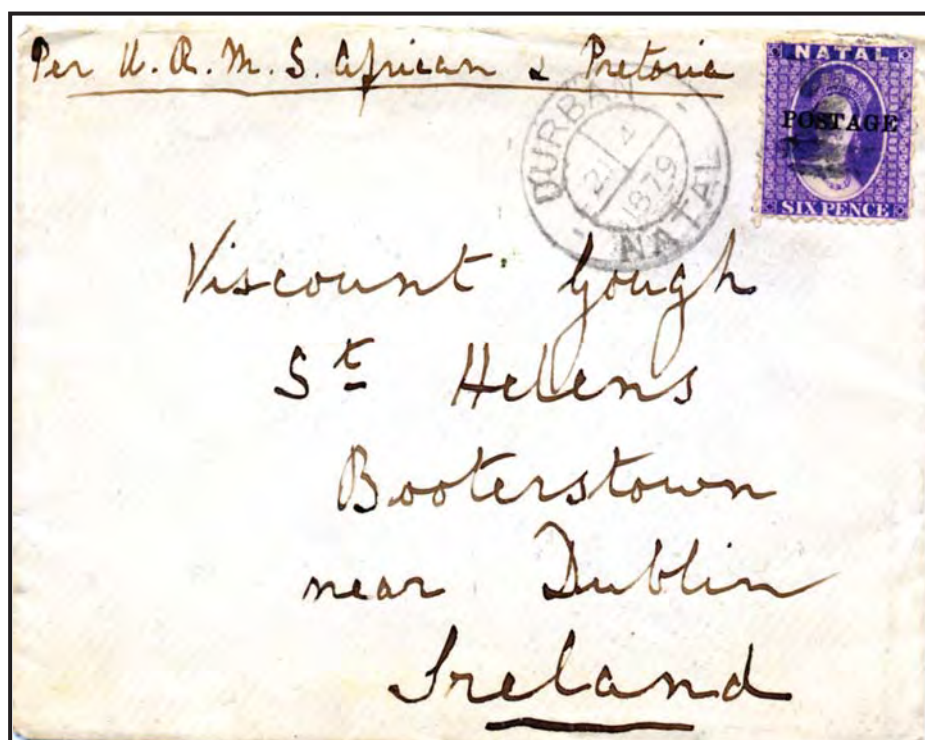 Per U. R. M. S. African & Pretoria
NATAL
POSTAGE
SIX PENCE
DURBAN
21 4
1879
NATAL
Viscount Gough
St Helens
Booterstown
near Dublin
Ireland